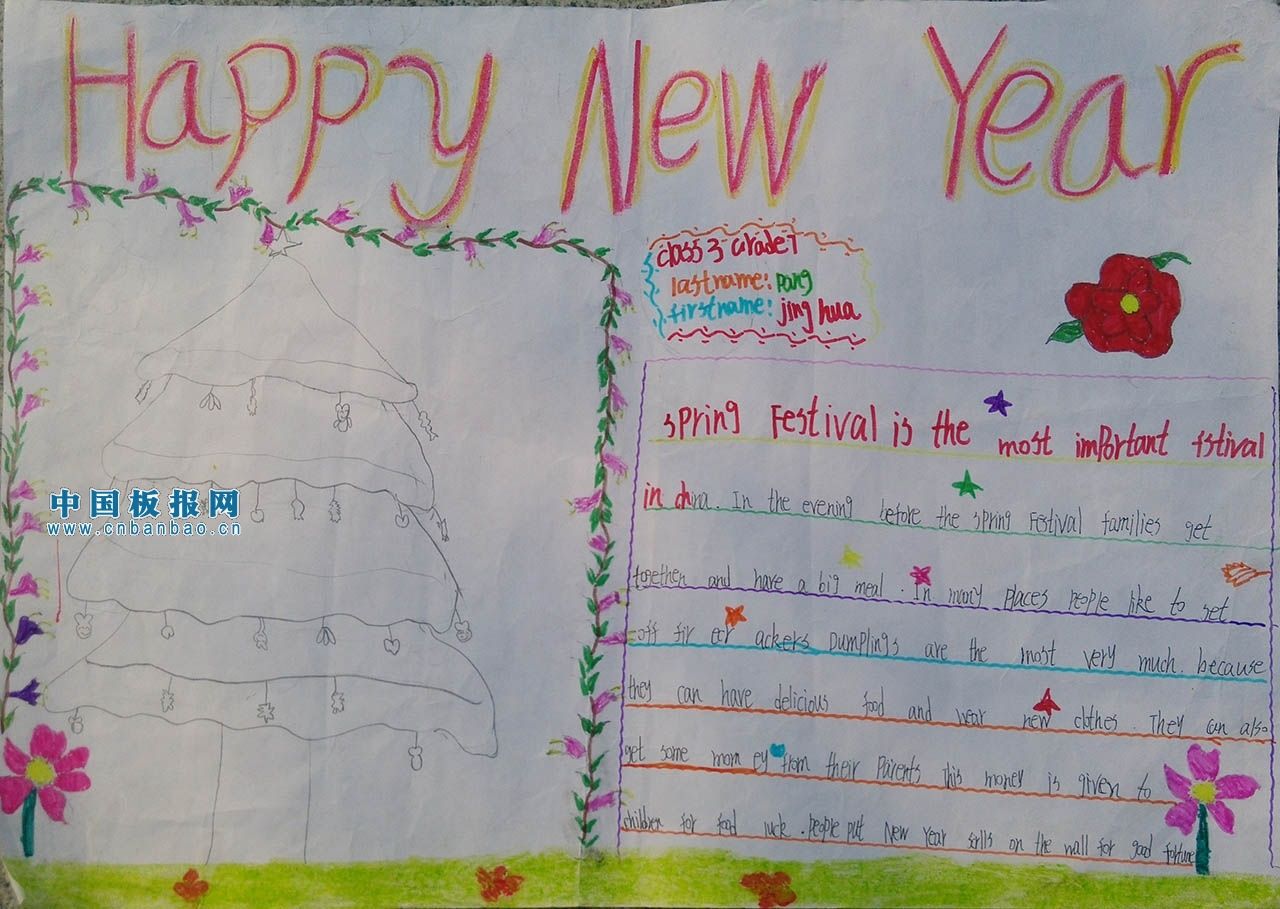 Happy New Year
class 3 Grade 7
lastname: Pang
firstname: jing hua
spring Festival is the most important fstival
in china. In the evening before the spring Festival families get
together and have a big meal. In many places people like to set
off fir ecr ackers Dumplings are the most very much. because
they can have delicious food and wear new clothes. They can also
get some mom ey from their Parents this money is given to
children for food luck. people put New Year on the wall for good fortune
中国板报网
www.cnbanbao.cn